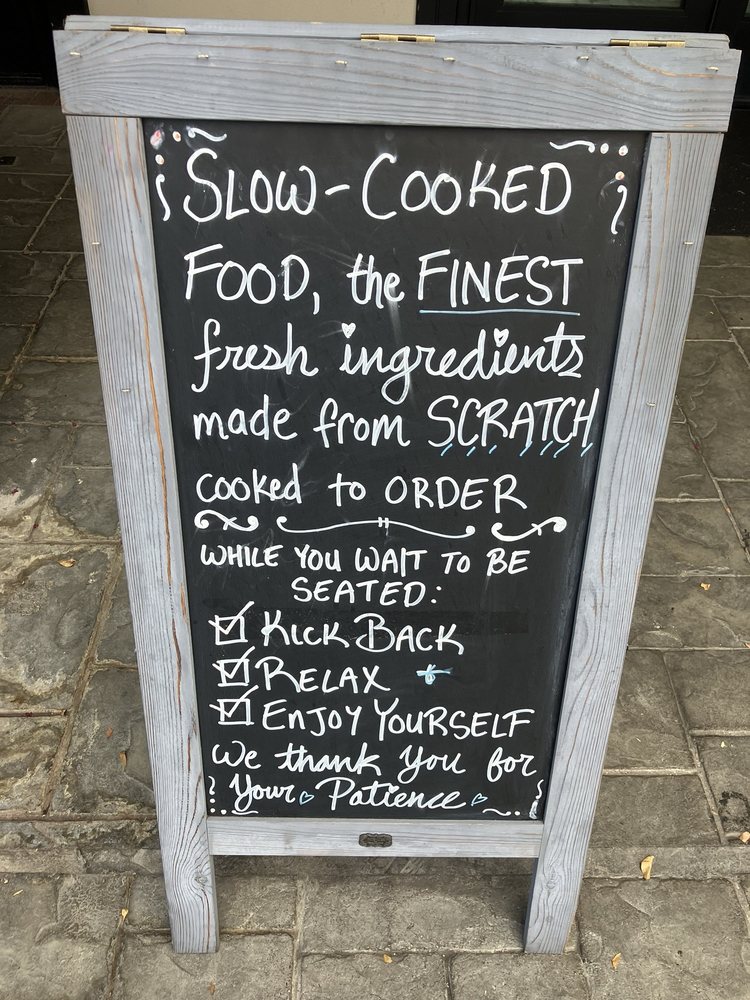 SLOW-COOKED
FOOD, the FINEST
fresh ingredients
made from SCRATCH
cooked to ORDER
WHILE YOU WAIT TO BE
SEATED:
KICK BACK
RELAX
ENJOY YOURSELF
We thank you for
Your Patience